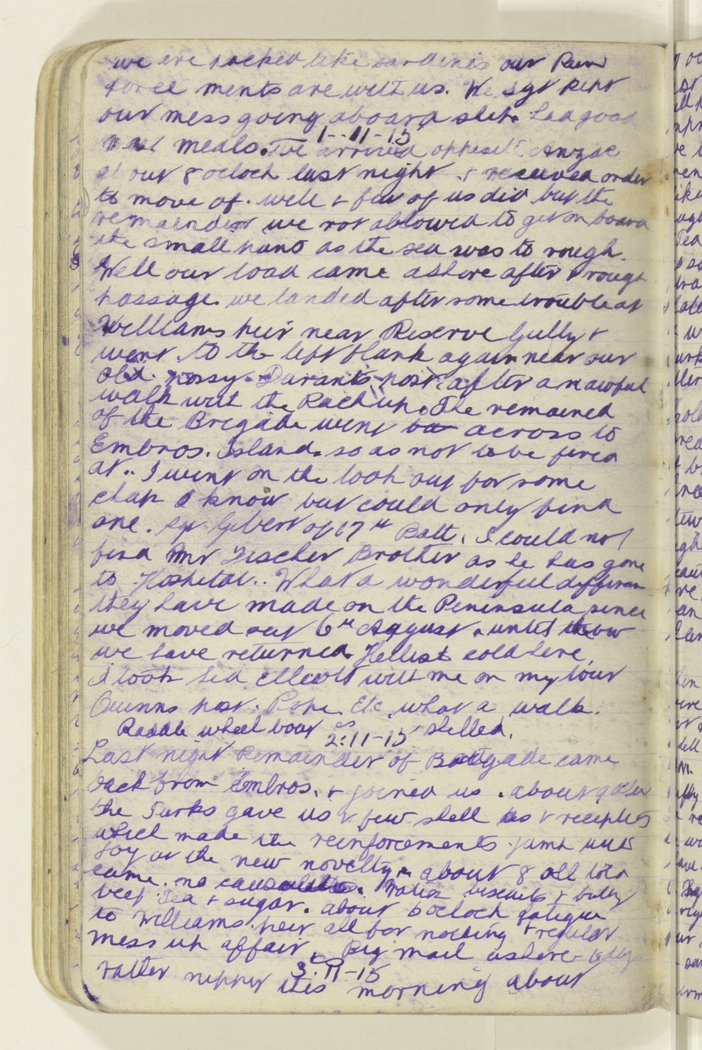 we are packed like sardines our Rein
force ments are with us. The Sgt kept
our mess going aboard ship. had good
meals.
1-11-15
We arrived opposite Anzac
at our 8 oclock last night & received order
to move of. well a few of us did but the
remainder we not allowed to get on board
the small as the sea was to rough.
Well our load came ashore after a rough
passage. we landed after some trouble at
Williams Peir near Reserve Gully &
went to the left flank again near our
old possy. Durants post. after an awful
walk with the Pack up. The remained
of the Brigade went across to
Embros. Island. so as not to be fired
at.. I went on the look out for some
chap I know but could only find
one. Sgt Gibert of 17th Batt. I could not
find Mr Fischer Brother as he has gone
to Hospital.. What a wonderful differen
they have made on the Peninsula since
we moved out 6th August. until now
we have returned. Hellish cold here,
I took Sid with me on my tour
Quinns post. Pope Etc. what a walk.
Paddle wheel boat shelled.
2.11-15
Last night Remainder of Brigade came
back from Embros. & joined us. about
the Turks gave us a few shell as a receipts
which made the reinforcements. jump with
joy at the new novelty. about 8 all told
came. no biscuits & bully
beef Tea & sugar. about 6 oclock fatigue
to Williams peir all for nothing a regular
mess up affair Big mail ashore today
3.11-15
rather nippy this morning about